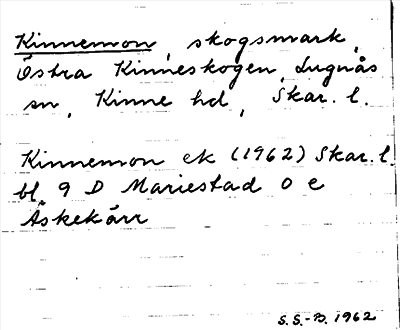 Kinnemon, skogsmark,
Östra Kinneskogen, Lugnås
sn, Kinne hd, Skar. l.
Kinnemon ek (1962) Skar. l.
bl. 9 D Mariestad 0 e
Askekärr
S.S.-B. 1962